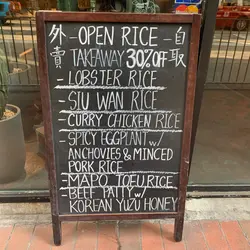 外賣
自取
- OPEN RICE -
TAKEAWAY 30% OFF
- LOBSTER RICE
- SIU WAN RICE
- CURRY CHICKEN RICE
- SPICY EGGPLANT W/
ANCHOVIES & MINCED
PORK RICE
- MAPO TOFU RICE
- BEEF PATTY W/
KOREAN YUZU HONEY